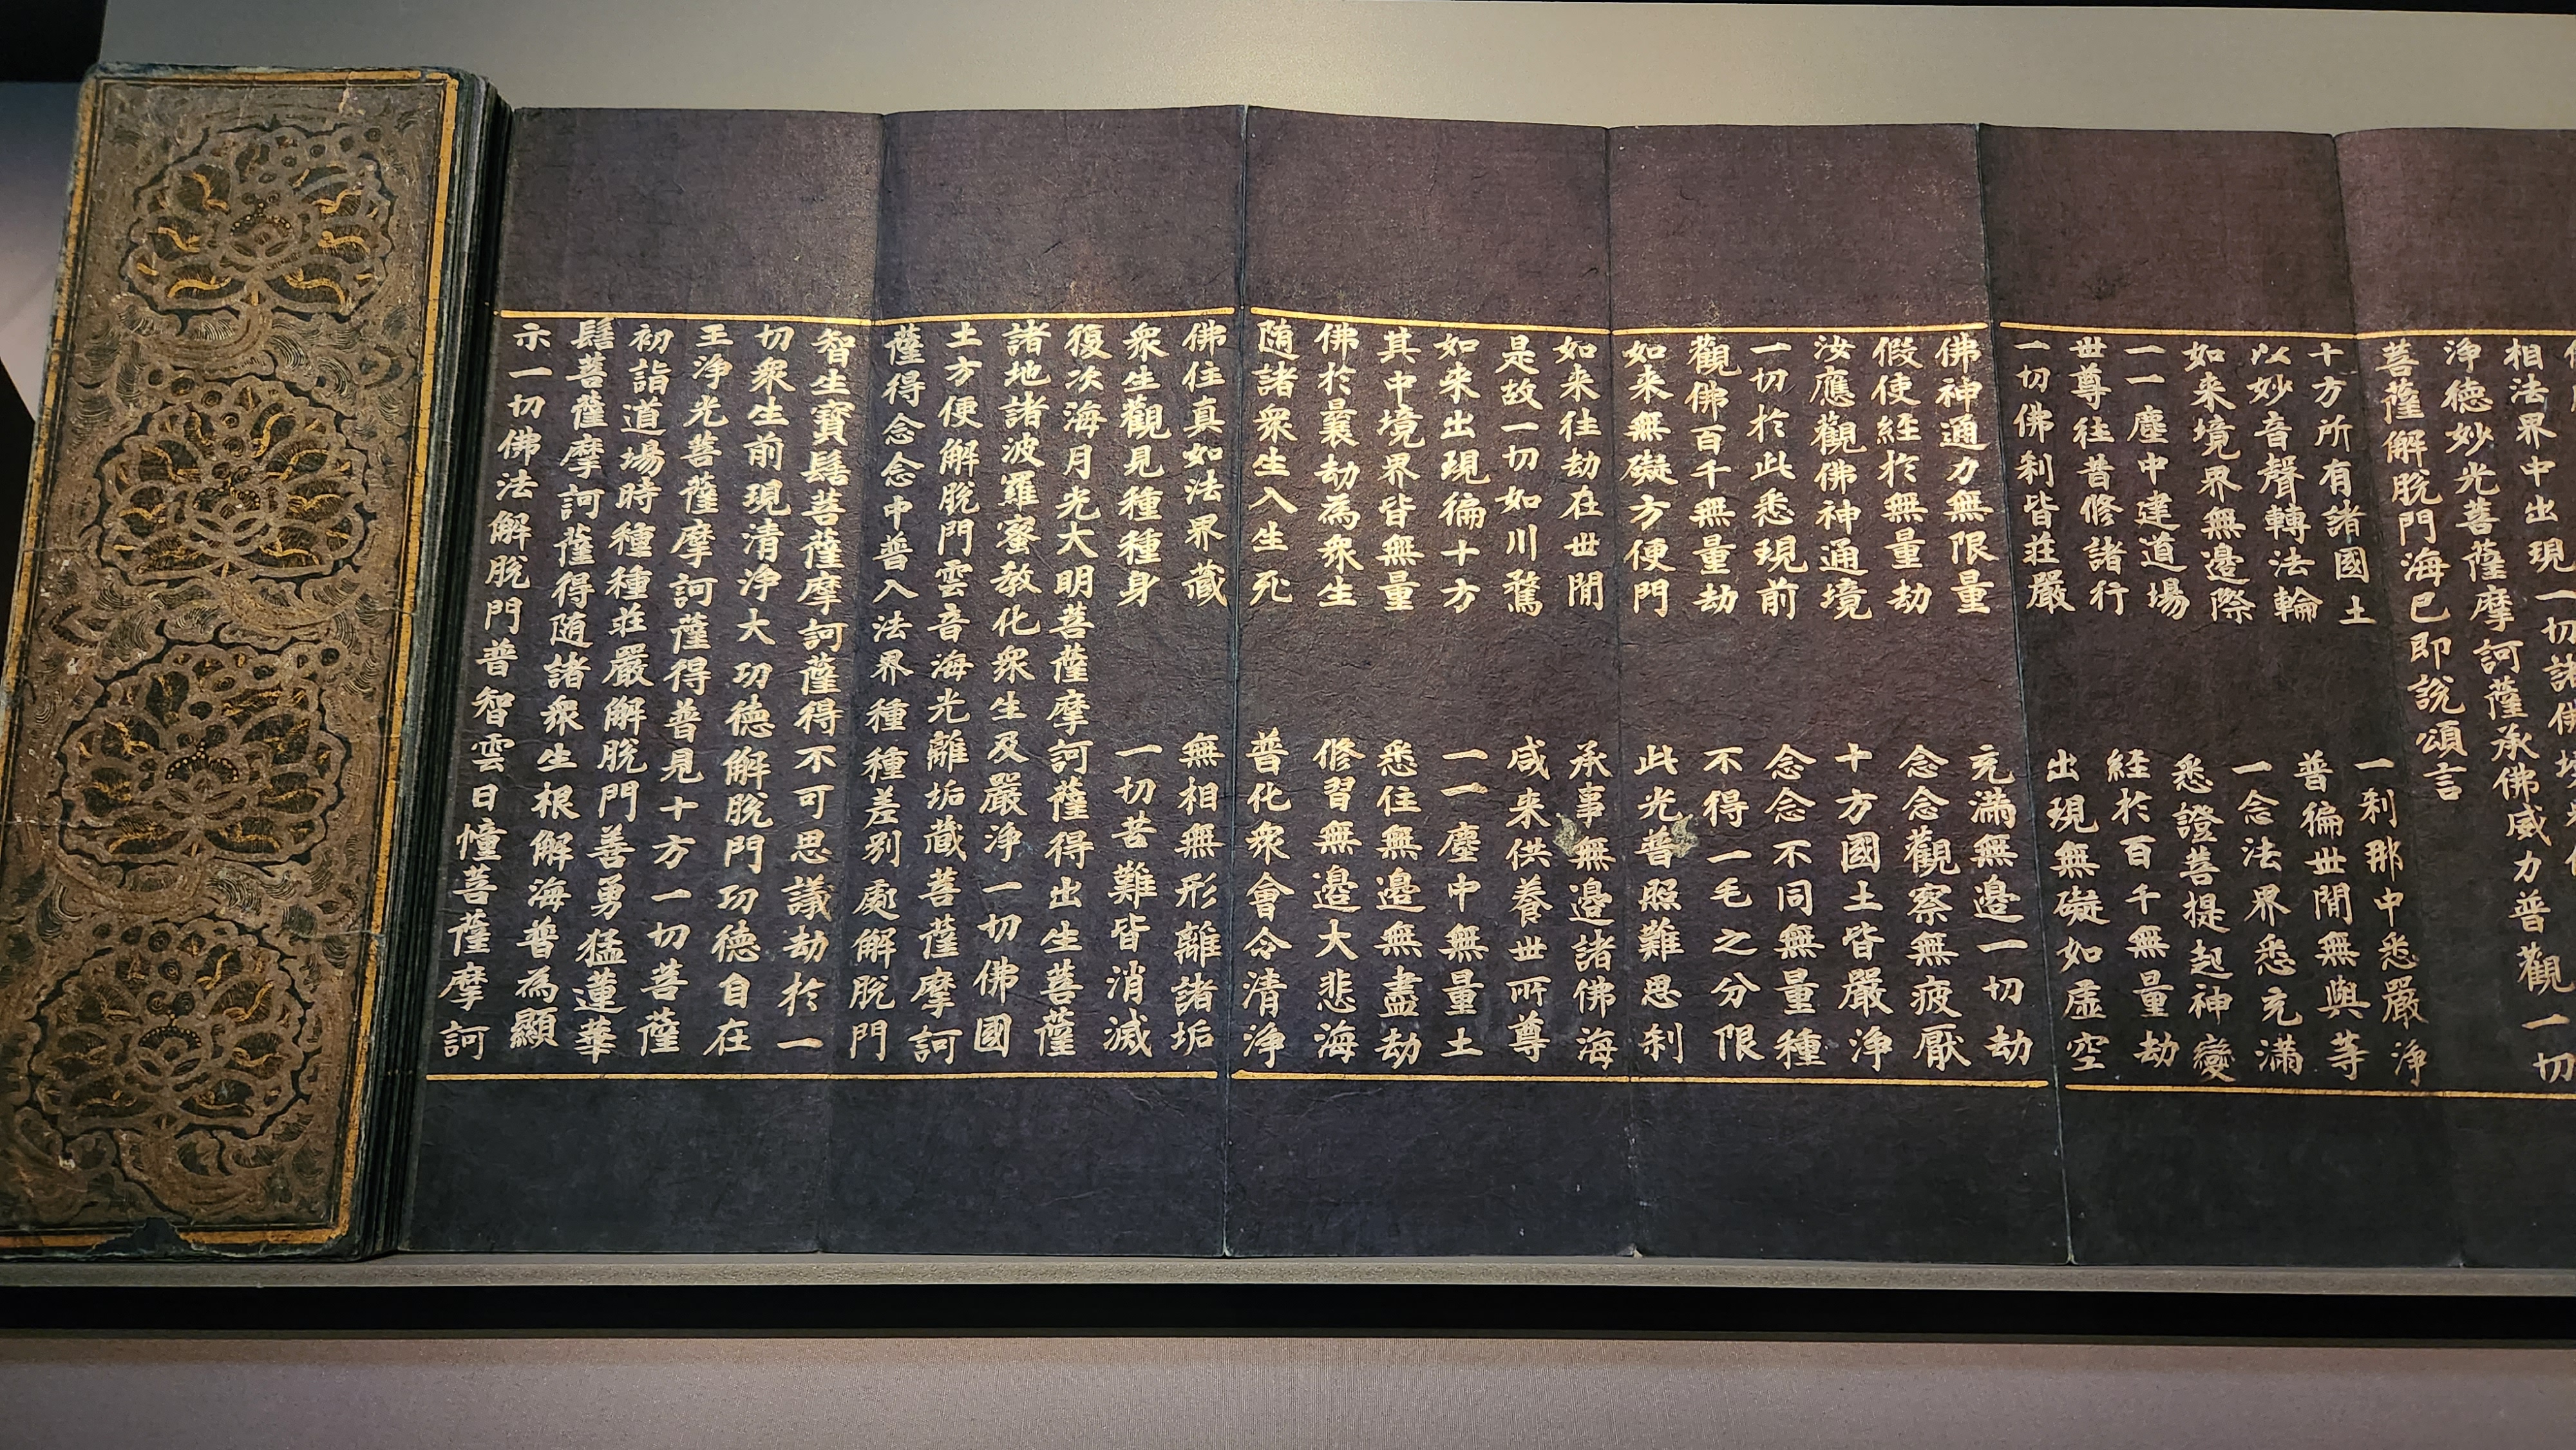 相法界中出現一切諸佛
淨德妙光菩薩摩訶薩承佛威力普觀一切
菩薩解脫門海已即說頌言
十方所有諸國土 一刹那中悉嚴淨
以妙音聲轉法輪 普徧世間無與等
如来境界無邊際 一念法界悉充滿
一一塵中建道場 悉證菩提起神變
世尊往昔修諸行 經於百千無量劫
一切佛刹皆莊嚴 出現無礙如虛空
佛神通力無限量 充滿無邊一切劫
假使經於無量劫 念念觀察無疲厭
汝應觀佛神通境 十方國土皆嚴淨
一切於此悉現前 念念不同無量種
觀佛百千無量劫 不得一毛之分限
如来無礙方便門 此光普照難思刹
如来往劫在世間 承事無邊諸佛海
是故一切如川騖 咸来供養世所尊
如来出現徧十方 一一塵中無量土
其中境界皆無量 悉住無邊無盡劫
佛於曩劫為衆生 修習無邊大悲海
随諸衆生入生死 普化衆會令清淨
佛住真如法界藏 無相無形離諸垢
衆生觀見種種身 一切苦難皆消滅
復次海月光大明菩薩摩訶薩得出生菩薩
諸地諸波羅蜜教化衆生及嚴淨一切佛國
土方便解脫門雲音海光離垢藏菩薩摩訶
薩得念念中普入法界種種差別處解脫門
智生寶髻菩薩摩訶薩得不可思議劫於一
切衆生前現清淨大功德解脫門功德自在
王淨光菩薩摩訶薩得普見十方一切菩薩
初詣道場時種種莊嚴解脫門善勇猛蓮華
髻菩薩摩訶薩得随諸衆生根解海普為顯
示一切佛法解脫門普智雲日幢菩薩摩訶